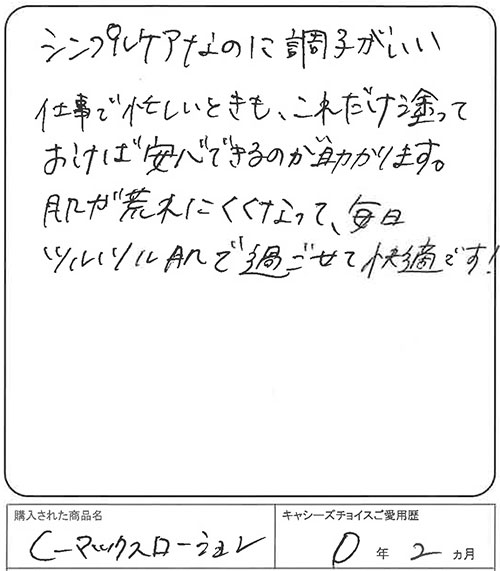 シンプルケアなのに調子がいい
仕事で忙しいときも、これだけ塗って
おけば安心できるのが助かります。
肌が荒れにくくなって、毎日
ツルツル肌で過ごせて快適です!
購入された商品名
キャシーズチョイスご愛用歴
Cーマックスローション
0年2ヵ月